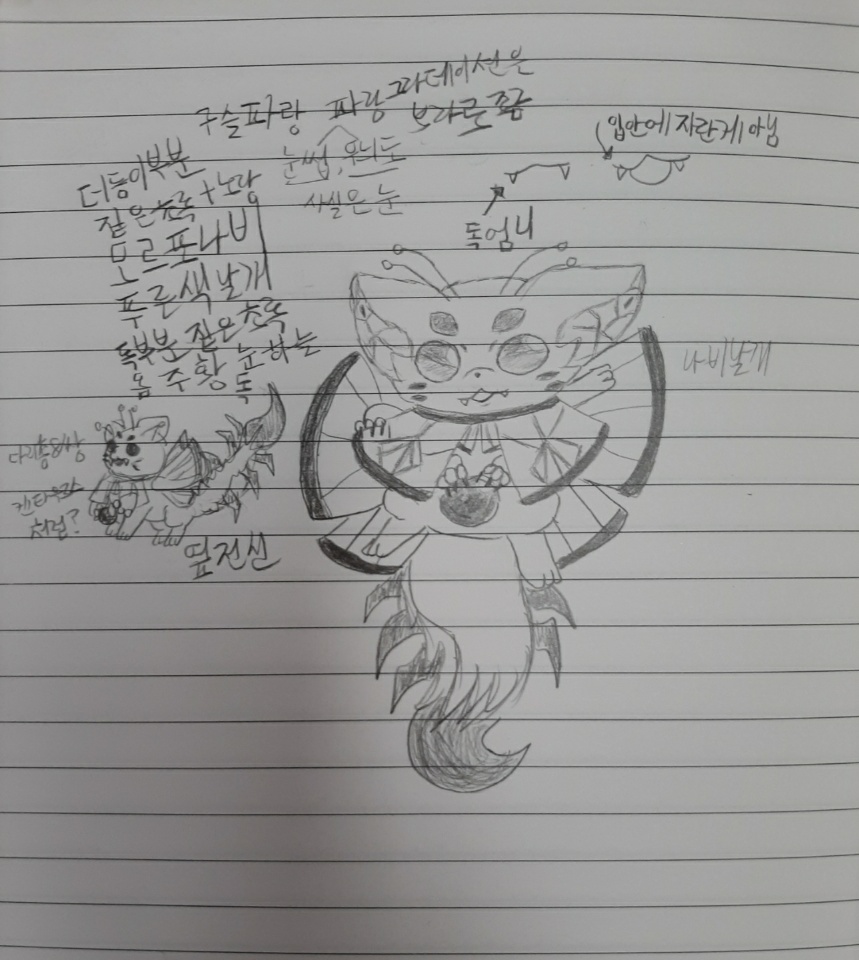 구슬파랑 파랑그라데이션은
보라로조금
눈썹, 무늬도
사실은 눈
입안에 자란게 아님
독엄니
더듬이부분
짙은초록+노랑
모르포나비
푸른색날개
독부분 짙은초록
몸 주황 눈 하늘
독
나비날개
켄타우로스
처럼?
옆전신